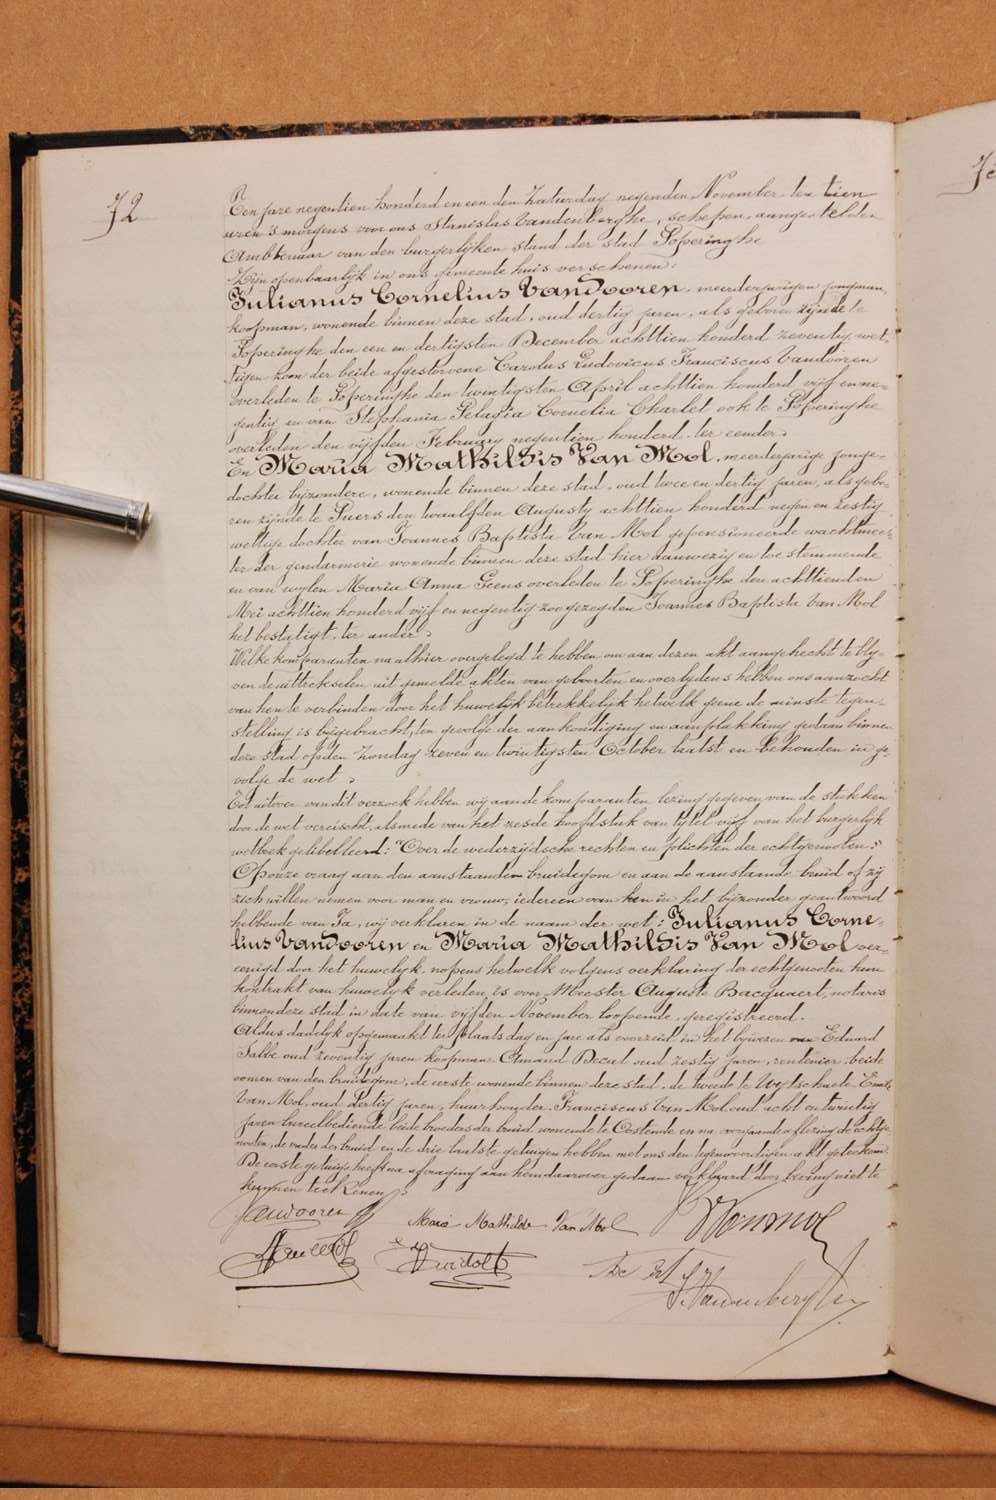 72
Ten jare negentien honderd en een den Zaturdag negenden November ten tien
uren 's morgens voor ons Stanislas Vandenberghe, schepen, aangestelden
Ambtenaar van den burgerlijken stand der stad Poperinghe
Zijn openbaarlijk in ons gemeente huis verschenen:
Julianus Cornelius Vandooren, meerderjarigen jongman,
koopman, wonende binnen deze stad, oud dertig jaren, als geboren zijnde te
Poperinghe den een en dertigsten December achttien honderd zeventig, wet-
tigen zoon der beide afgestorvene Carolus Ludovicus Franciscus Vandooren
overleden te Poperinghe den twintigsten April achttien honderd vijf en ne-
gentig en van Stephania Pelagia Cornelia Charlet ook te Poperinghe
overleden den vijfden February negentien honderd, ter eender.
En Maria Mathildis Van Mol, meerderjarige jonge-
dochter bijzondere, wonende binnen deze stad, oud twee en dertig jaren, als gebo-
ren zijnde te Puers den twaalfden Augusty achttien honderd negen en zestig
wettige dochter van Joannes Baptista Van Mol gepensioneerde wachtmees-
ter der gendarmerie wonende binnen deze stad hier aanwezig en toestemmende
en van wylen Maria Anna Geens overleden te Poperinghe den achttienden
Mei achttien honderd vijf en negentig zoo gezegden Joannes Baptista Van Mol
het bestatigt, ter ander.
Welke komparanten na alhier overgelegd te hebben om aan dezen akt aangehecht te bly-
ven de uittrekselen uit gemelde akten van geboorten en overlydens hebben ons aanzocht
van hen te verbinden door het huwelijk betrekkelijk hetwelk geene de minste tegen-
stelling is bygebracht, ten gevolge der aankondiging en aanplakking gedaan binnen
deze stad op den Zondag zeven en twintigsten October laatst en behouden in ge-
volge de wet.
Tot uitvoer van dit verzoek hebben wij aan de komparanten lezing gegeven van de stukken
door de wet vereischt, alsmede van het zesde hoofdstuk van tytel vijf van het burgerlyk
wetboek gelibelleerd: "Over de wederzijdsche rechten en plichten der echtgenooten."
Op onze vraag aan den aanstaanden bruidegom en aan de aanstaande bruid of zij
zich willen nemen voor man en vrouw, iedereen van hen in het bijzonder geantwoord
hebbende van Ja, wij verklaren in de naam der wet: Julianus Corne-
lius Vandooren en Maria Mathildis Van Mol ver-
eenigd door het huwelyk, nopens hetwelk volgens verklaring der echtgenooten hun
kontrakt van huwelyk verleden is voor Meester Auguste Bacquaert, notaris
binnen deze stad in date van vijfden November loopende, geregistreerd.
Aldus dadelyk opgemaakt ter plaats dag en jare als overzeid in het bijwezen van Eduard
Salbe oud zeventig jaren koopman, Amand Decul oud zestig jaren, rentenier, beide
oomen van den bruidegom, de eerste wonende binnen deze stad, de tweede te Wytschaete, Emile
Van Mol, oud dertig jaren, huurhouder, Franciscus Van Mol oud acht en twintig
jaren bureelbediende beide broeders der bruid wonende te Oostende en na voorgaande aflezing de echtge-
nooten, de vader der bruid en de drie laatste getuigen hebben met ons den tegenwoordigen akt geteekend.
De eerste getuige heeft na afvraging aan hem daarover gedaan verklaard door beving niet te
kunnen teekenen.
Vandooren J Maria Mathilde Van Mol JVanmol
E Vanmol
S. Vandenberghe